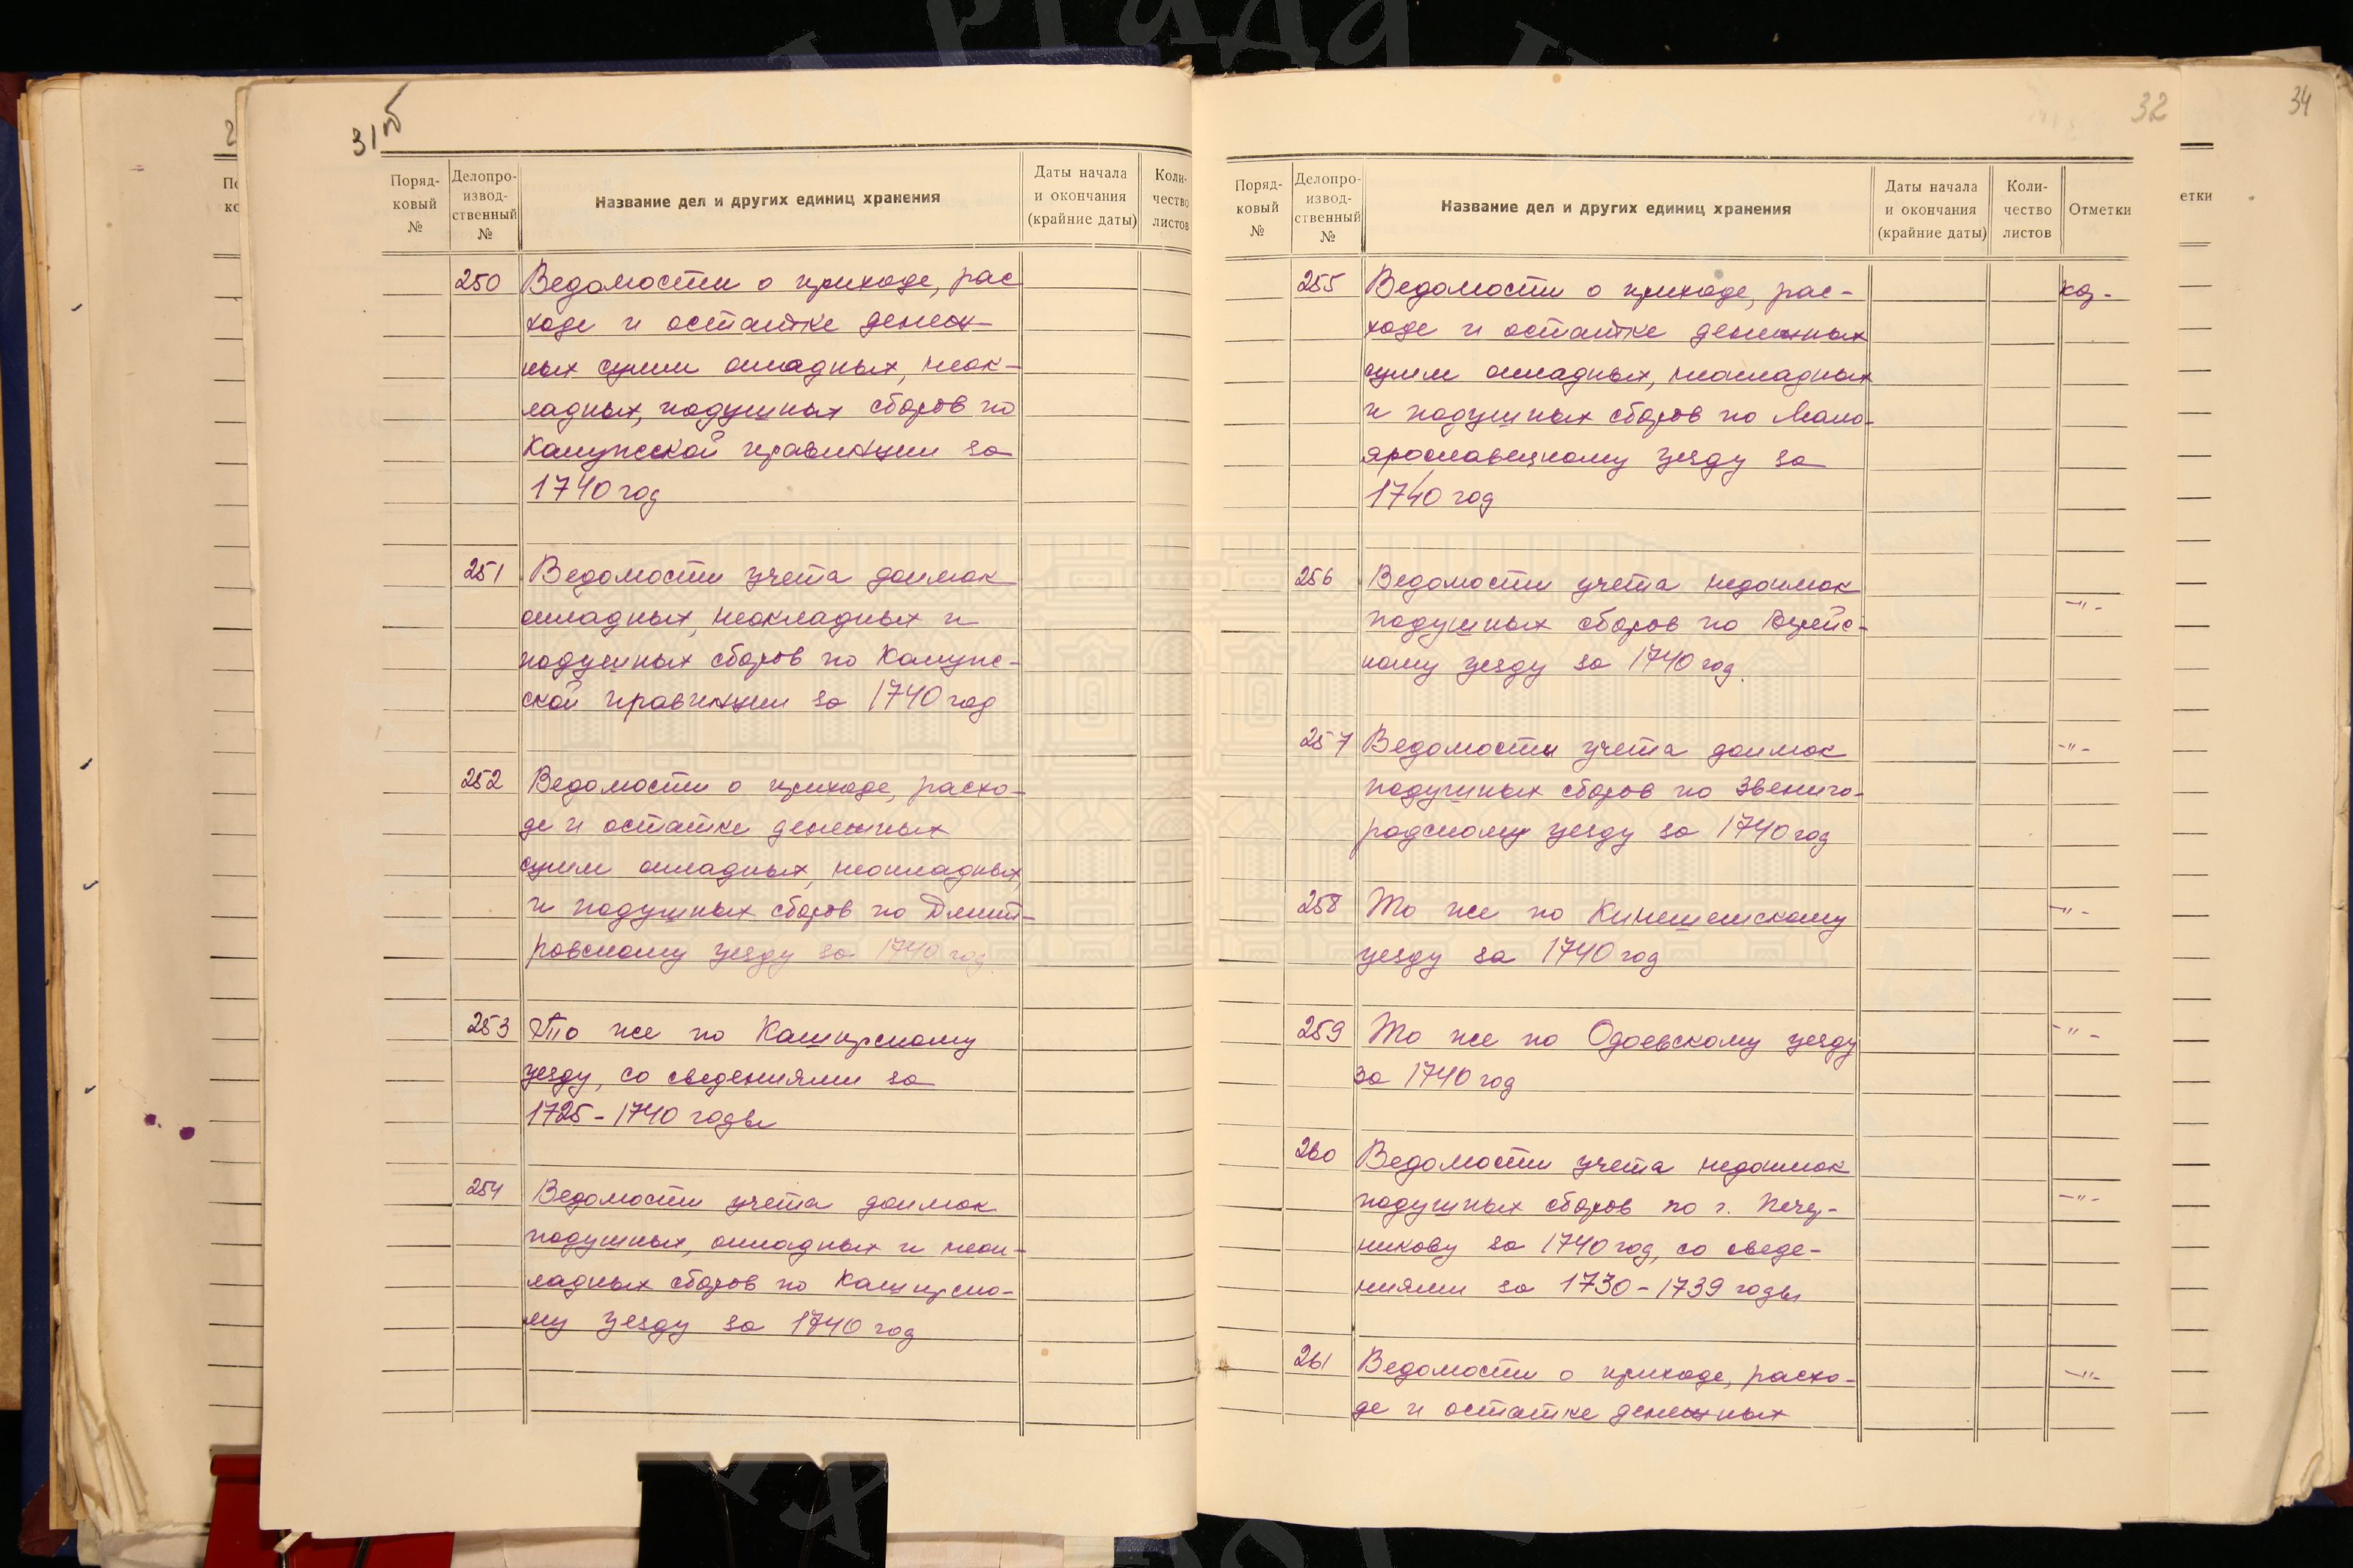 31об
Поряд-
ковый
№
Делопро-
извод-
ственный
№
Название дел и других единиц хранения
Даты начала
и окончания
(крайние даты)
Коли-
чество
листов
250 Ведомости о приходе, рас
ходе и остатке денеж-
ных сумм окладных, неок-
ладных, подушных сборов по
Калужской провинции за
1740 год
251 Ведомости учета доимок
окладных, неокладных и
подушных сборов по Калуж-
ской провинции за 1740 год
252 Ведомости о приходе, расхо-
де и остатке денежных
сумм окладных, неокладных
и подушных сборов по Дмит-
ровскому уезду за 1740 год
253 То же по Каширскому
уезду, со сведениями за
1725-1740 годы
254 Ведомости учета доимок
подушных, окладных и неок-
ладных сборов по Каширско-
му уезду за 1740 год
32
34
Поряд-
ковый
№
Делопро-
извод-
ственный
№
Название дел и других единиц хранения
Даты начала
и окончания
(крайние даты)
Коли-
чество
листов
Отметки
етки
255 Ведомости о приходе, рас-
ходе и остатке денежных
сумм окладных, неокладных
и подушных сборов по Мало-
ярославецкому уезду за
1740 год
256 Ведомости учета недоимок -"-
подушных сборов по Верейс-
кому уезду за 1740 год.
257 Ведомости учета доимок -"-
подушных сборов по Звениго-
родскому уезду за 1740 год
258 То же по Кинешемскому -"-
уезду за 1740 год
259 То же по Одоевскому уезду -"-
за 1740 год
260 Ведомости учета недоимок
подушных сборов по г. Печер- -"-
никову за 1740 год, со сведе-
ниями за 1730-1739 годы
261 Ведомости о приходе, расхо- -"-
де и остатке денежных